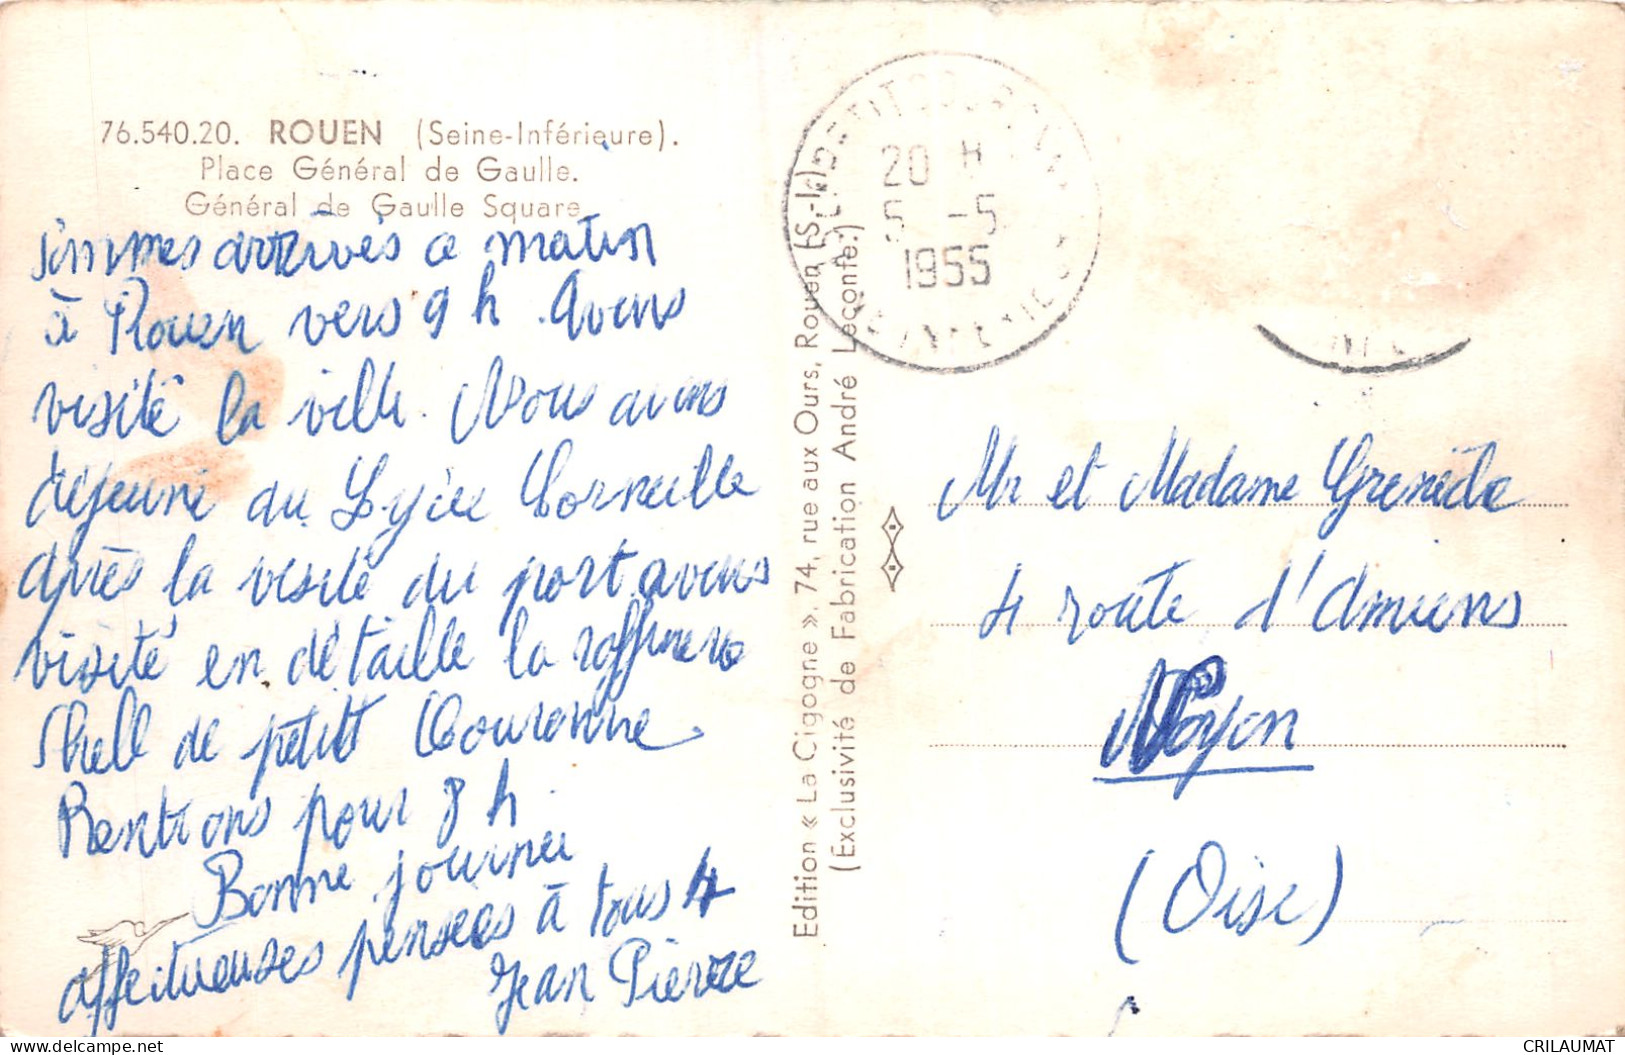 76.540.20. ROUEN (Seine-Inférieure).
Place Général de Gaulle.
Général de Gaulle Square
sommes arrivés ce matin
à Rouen vers 9 h. Avons
visité la ville. Nous avons
déjeuné au Lycée Corneille
après la visite du port avons
visité en détaille la raffinerie
Shell de petit Couronne.
Rentrons pour 8 h
Bonne journée
affectueuses pensées à tous 4
Jean Pierre
Edition « La Cigogne ». 74, rue aux Ours, Rouen (S.-I.)
(Exclusivité de Fabrication André Leconte.)
PETIT COURONNE
20 H
5 -5
1955
SEINE INFERIEURE
Mr et Madame Grenède
4 route d'Amiens
Noyon
(Oise)
www.delcampe.net
CRILAUMAT